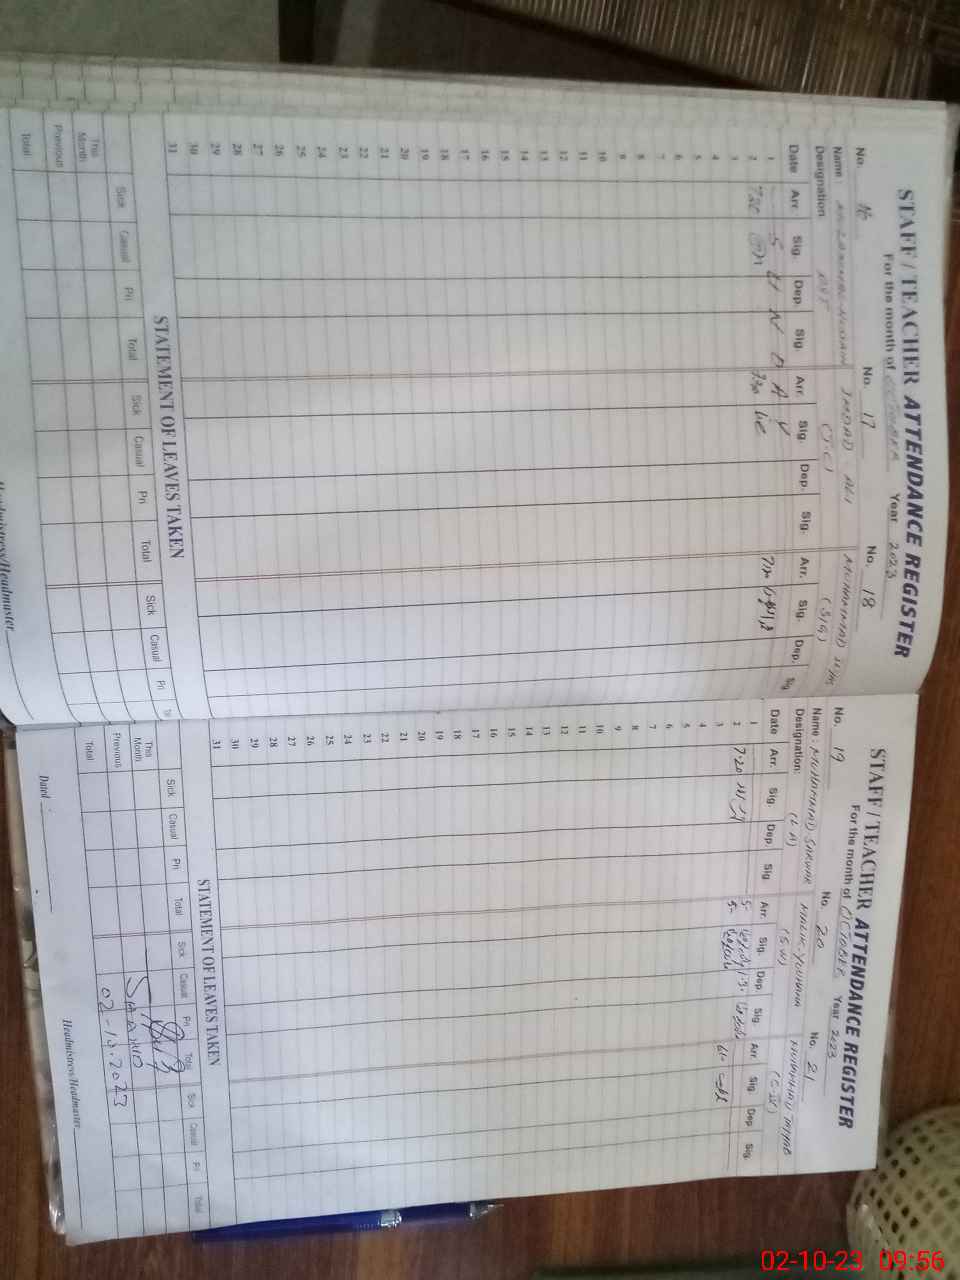 STAFF / TEACHER ATTENDANCE REGISTER
For the month of OCTOBER Year 2023
No. 16 No. 17 No. 18
Name: IMDAD ALI MUHAMMAD
Designation (S/G)
Date Arr. Sig. Dep. Sig. Arr. Sig. Dep. Sig. Arr. Sig. Dep. Sig
1 S U N D A Y
2 720 730 720
3
4
5
6
7
8
9
10
11
12
13
14
15
16
17
18
19
20
21
22
23
24
25
26
27
28
29
30
31
STATEMENT OF LEAVES TAKEN
Sick Casual Pri Total Sick Casual Pri Total Sick Casual Pri
This Month
Previous
Total
Headmistress/Headmaster
STAFF / TEACHER ATTENDANCE REGISTER
For the month of OCTOBER Year 2023
No. 19 No. 20 No. 21
Name: MUHAMMAD SARWAR MALIK MUHAMMAD TAYYAB
Designation: (L A) (S.W)
Date Arr. Sig. Dep. Sig. Arr. Sig. Dep. Sig. Arr. Sig. Dep. Sig.
1 5-
2 720 5-
3
4
5
6
7
8
9
10
11
12
13
14
15
16
17
18
19
20
21
22
23
24
25
26
27
28
29
30
31
STATEMENT OF LEAVES TAKEN
Sick Casual Pri Total Sick Casual Pri Total Sick Casual Pri Total
This Month
Previous
Total
02-10-2023
Dated
Headmistress/Headmaster
02-10-23 09:56